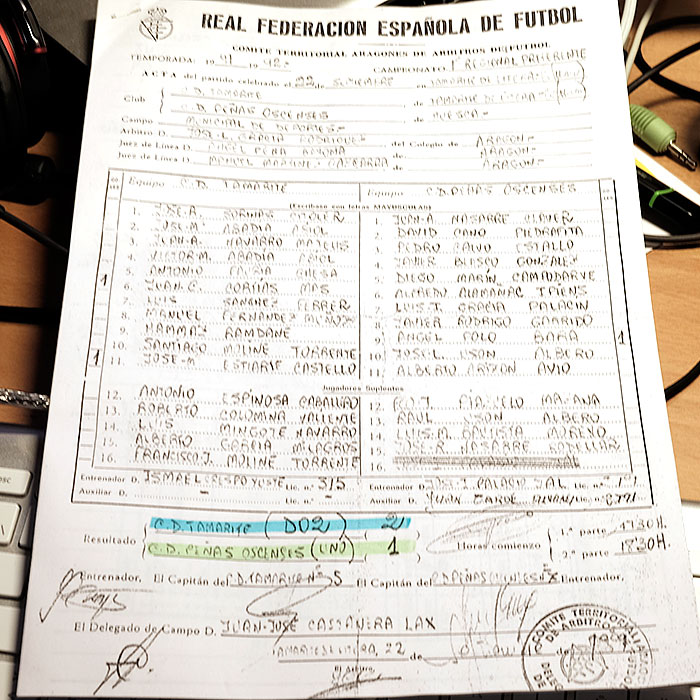 REAL FEDERACION ESPAÑOLA DE FUTBOL
COMITE TERRITORIAL ARAGONES DE ARBITROS DE FUTBOL
TEMPORADA: 19 91 - 92 CAMPEONATO 1ª REGIONAL PREFERENTE
ACTA del partido celebrado el 22 de SEPTIEMBRE en TAMARITE DE LITERA
Club C.D. TAMARITE de TAMARITE DE LITERA
C.D. PEÑAS OSCENSES de HUESCA
Campo MUNICIPAL DE DEPORTES
Arbitro D. JOSE L. GARCIA RODRIGUEZ del Colegio de ARAGON
Juez de Línea D. ANGEL PEÑA de ARAGON
Juez de Línea D. MANUEL MARTINEZ de ARAGON
Equipo C.D. TAMARITE
(Escríbase con letras MAYUSCULAS)
1. JOSE-A.
2. JOSE-M. ABADIA ASIOL
3. JUAN-A. NAVARRO
4. VICTOR-M. ABADIA ASIOL
5. ANTONIO
1
6. JUAN-C. CORTINS MAS
7. LUIS SANCHEZ FERRER
8. MANUEL FERNANDEZ
9. HAMMAS RAMDANE
10. SANTIAGO MOLINE TORRENTE
1
11. JOSE-M ESTIARTE CASTELLO
Equipo C.D. PEÑAS OSCENSES
1. JUAN-A. NASARRE CLAVER
2. DAVID CANO PIEDRAFITA
3. PEDRO CALVO ESTALLO
4. JAVIER BLASCO GONZALEZ
5. DIEGO MARIN CAMPODARVE
6. ALFREDO ALMAÑAC
7. LUIS-I. GRACIA PALACIN
8. JAVIER RODRIGO GARRIDO
9. ANGEL POLO BARA
1
10. JOSE-L. USON ALBERO
11. ALBERTO ARIZON AVIO
Jugadores Suplentes
12. ANTONIO ESPINOSA CABALLERO
13. ROBERTO COLOMINA VALIENTE
14. LUIS MINGOTE NAVARRO
15. ALBERTO GARCIA MILAGROS
16. FRANCISCO-J. MOLINE TORRENTE
12.
13. RAUL USON ALBERO
14. LUIS-M. BAUTISTA MORENO
15. NASARRE
16.
Entrenador D. ISMAEL CRESPO YUSTE Lic. n.º 315
Auxiliar D. - Lic. n.º -
Entrenador D. JOSE-I. PALACIO Lic. n.º
Auxiliar D. JUAN Lic. n.º
Resultado C.D. TAMARITE (DOS) 2
C.D. PEÑAS OSCENSES (UNO) 1
Horas comienzo 1.ª parte 1730H.
2.ª parte 1830H.
Entrenador, El Capitán del C.D. TAMARITE Nº 5 El Capitán del C.D. PEÑAS OSCENSES Entrenador,
El Delegado de Campo D. JUAN-JOSE CASTANERA LAX
22 de
El Arbitro
COMITE TERRITORIAL